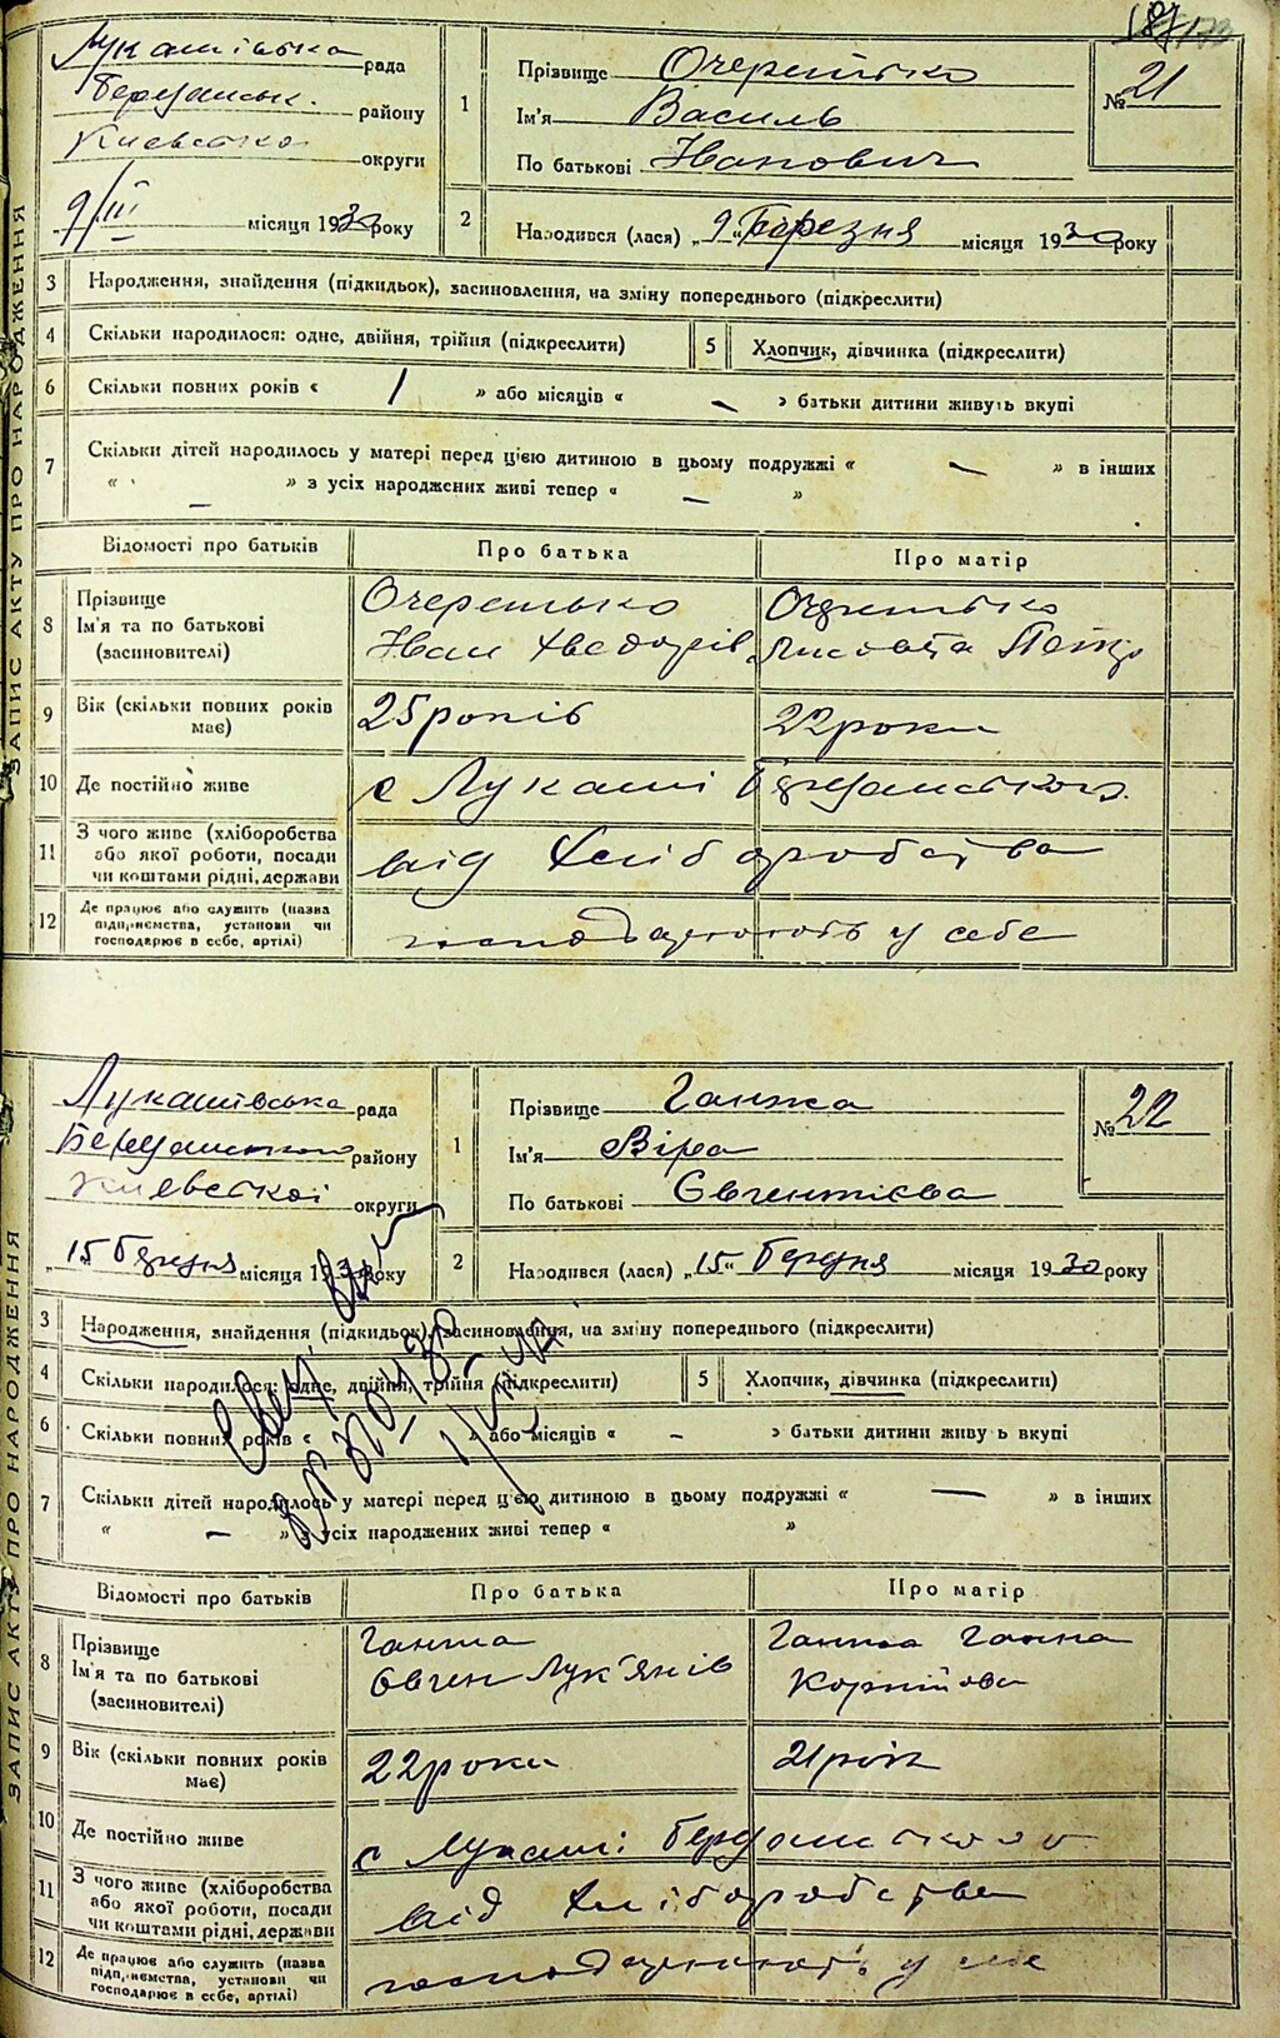 Лукашівська рада
Березанськ. району
Киевська округи
9/III місяця 1930 року
ЗАПИС АКТУ ПРО НАРОДЖЕННЯ
1
Прізвище Очеретько
Ім'я Василь
По батькові Иванович
№ 21
2
Народився (лася) „9" Березня місяця 1930 року
3 Народження, знайдення (підкидьок), засиновлення, на зміну попереднього (підкреслити)
4 Скільки народилося: одне, двійня, трійня (підкреслити)
5 Хлопчик, дівчинка (підкреслити)
6 Скільки повних років « 1 » або місяців « – » батьки дитини живуть вкупі
7 Скільки дітей народилось у матері перед цією дитиною в цьому подружжі « – » в інших
« – » з усіх народжених живі тепер « – »
Відомості про батьків Про батька Про матір
8 Прізвище
Ім'я та по батькові
(засиновителі)
Очеретько
Иван Хведорів
Очеретько
Лисовета Петр
9 Вік (скільки повних років
має)
25 років
22 роки
10 Де постійно живе
с Лукаші Березанського
11 З чого живе (хліборобства
або якої роботи, посади
чи коштами рідні, держави
від хліборобства
12 Де працює або служить (назва
підприємства, установи чи
господарює в себе, артілі)
господарюють у себе
Лукашівська рада
Березанського району
Киевської округи
15 березня місяця 1930 року
ЗАПИС АКТУ ПРО НАРОДЖЕННЯ
1
Прізвище Ганжа
Ім'я Віра
По батькові Євгентієва
№ 22
2
Народився (лася) „15" березня місяця 1930 року
3 Народження, знайдення (підкидьок), засиновлення, на зміну попереднього (підкреслити)
4 Скільки народилося: одне, двійня, трійня (підкреслити)
5 Хлопчик, дівчинка (підкреслити)
6 Скільки повних років « » або місяців « – » батьки дитини живу ь вкупі
7 Скільки дітей народилось у матері перед цією дитиною в цьому подружжі « – » в інших
« – » з усіх народжених живі тепер « »
Відомості про батьків Про батька Про матір
8 Прізвище
Ім'я та по батькові
(засиновителі)
Ганжа
Овген Лук'янів
Ганжа Ганна
Корнійова
9 Вік (скільки повних років
має)
22 роки
21 рік
10 Де постійно живе
с Лукаші Березанського
11 З чого живе (хліборобства
або якої роботи, посади
чи коштами рідні, держави
від хліборобства
12 Де працює або служить (назва
підприємства, установи чи
господарює в себе, артілі)
господарюють у себе